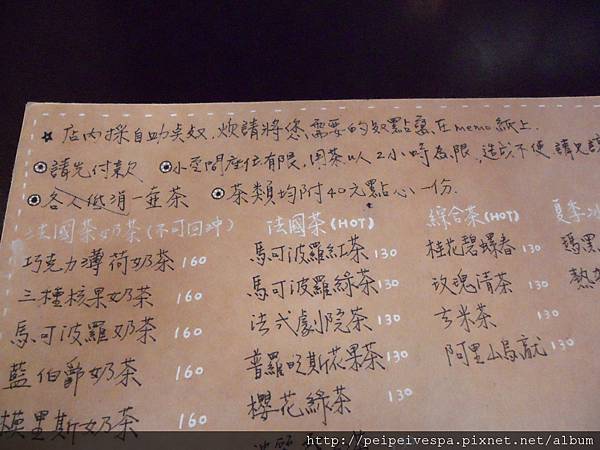 ★店內採自助點餐，煩請將您需要的餐點寫在memo紙上．
請先付款 小空間座位有限，用茶以2小時為限，造成不便 請見諒
各人低消一壺茶 茶類均附40元點心一份．
法國茶奶茶(不可回沖)
巧克力薄荷奶茶 160
三種核果奶茶 160
馬可波羅奶茶 160
藍伯爵奶茶 160
模里斯奶茶
法國茶(HOT)
馬可波羅紅茶 130
馬可波羅綠茶 130
法式劇院茶 130
普羅旺斯花果茶 130
櫻花綠茶 130
綜合茶(HOT)
桂花碧螺春 130
玫瑰清茶 130
玄米茶 130
阿里山烏龍 130
夏季冰
瑪黑
熱
http://peipeivespa.pixnet.net/album